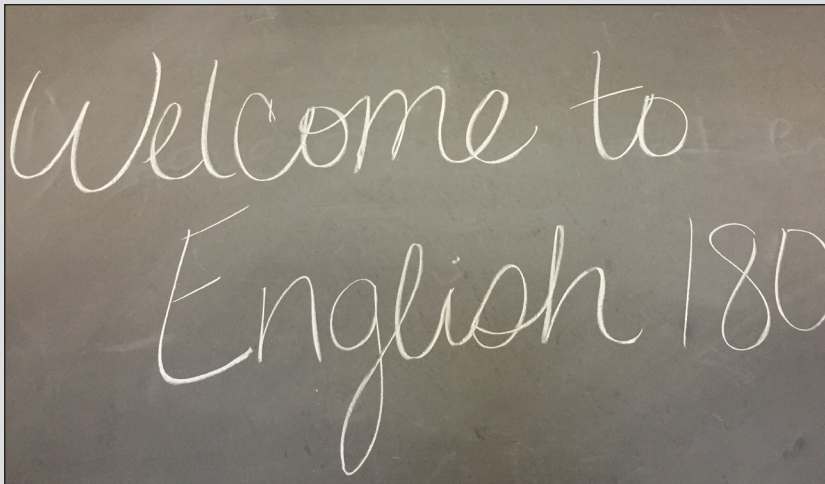 Welcome to
English 180